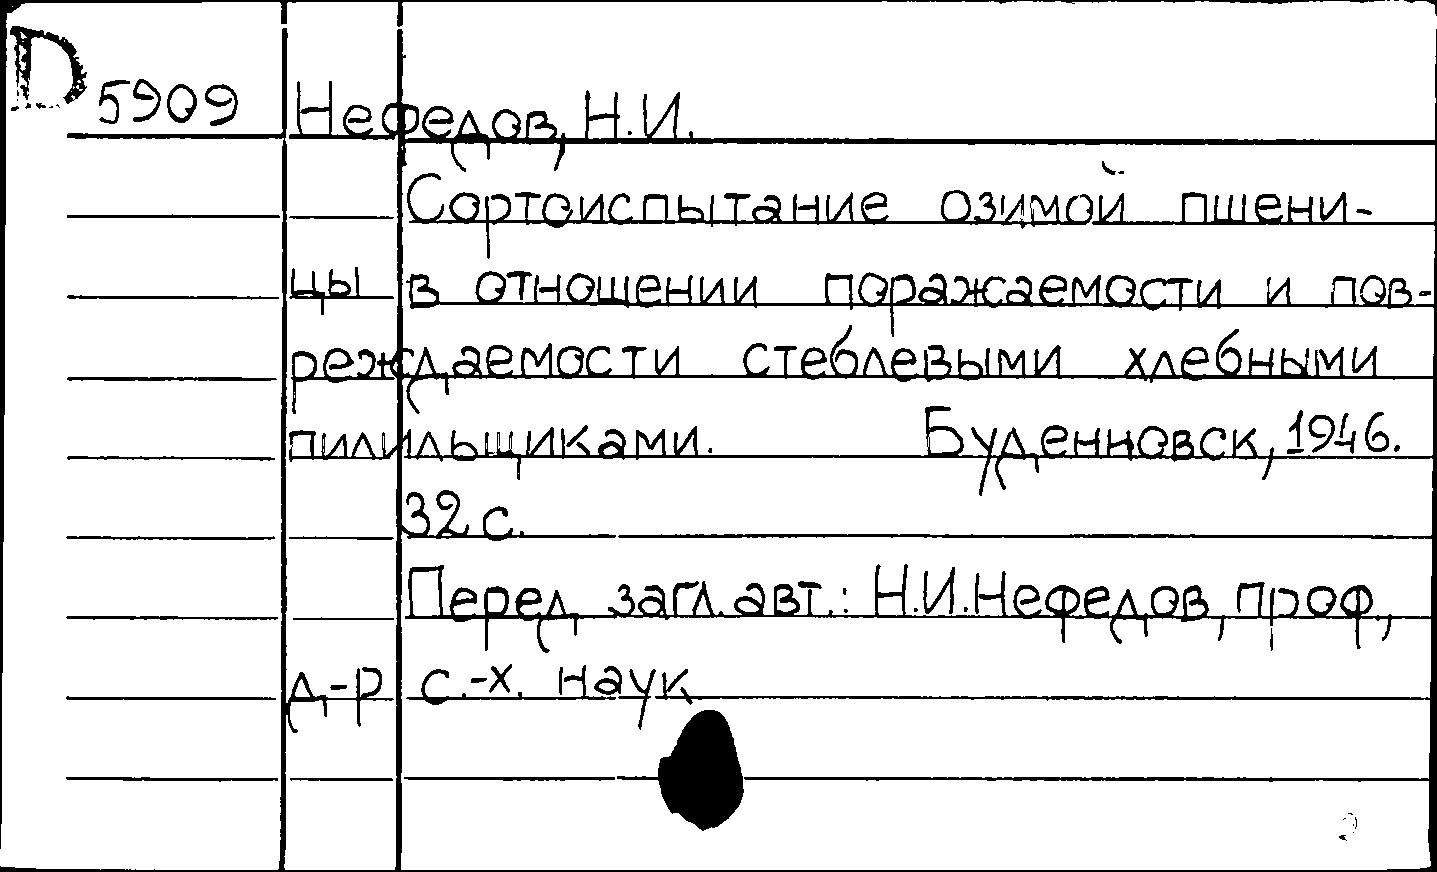 D 5909 Нефедов, Н.И.
Сортоиспытание озимой пшени-
цы в отношении поражаемости и пов-
реждаемости стеблевыми хлебными
пилильщиками. Буденновск, 1946.
32 с.
Перед загл. авт.: Н.И.Нефедов, проф.,
д-р с.-х. наук